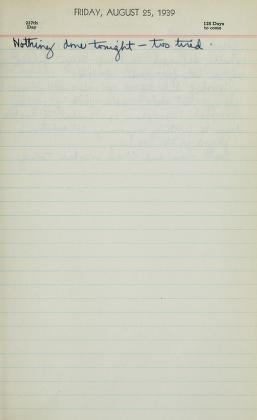 FRIDAY, AUGUST 25, 1939
237th
Day
128 Days
to come
Nothing done tonight – too tired.